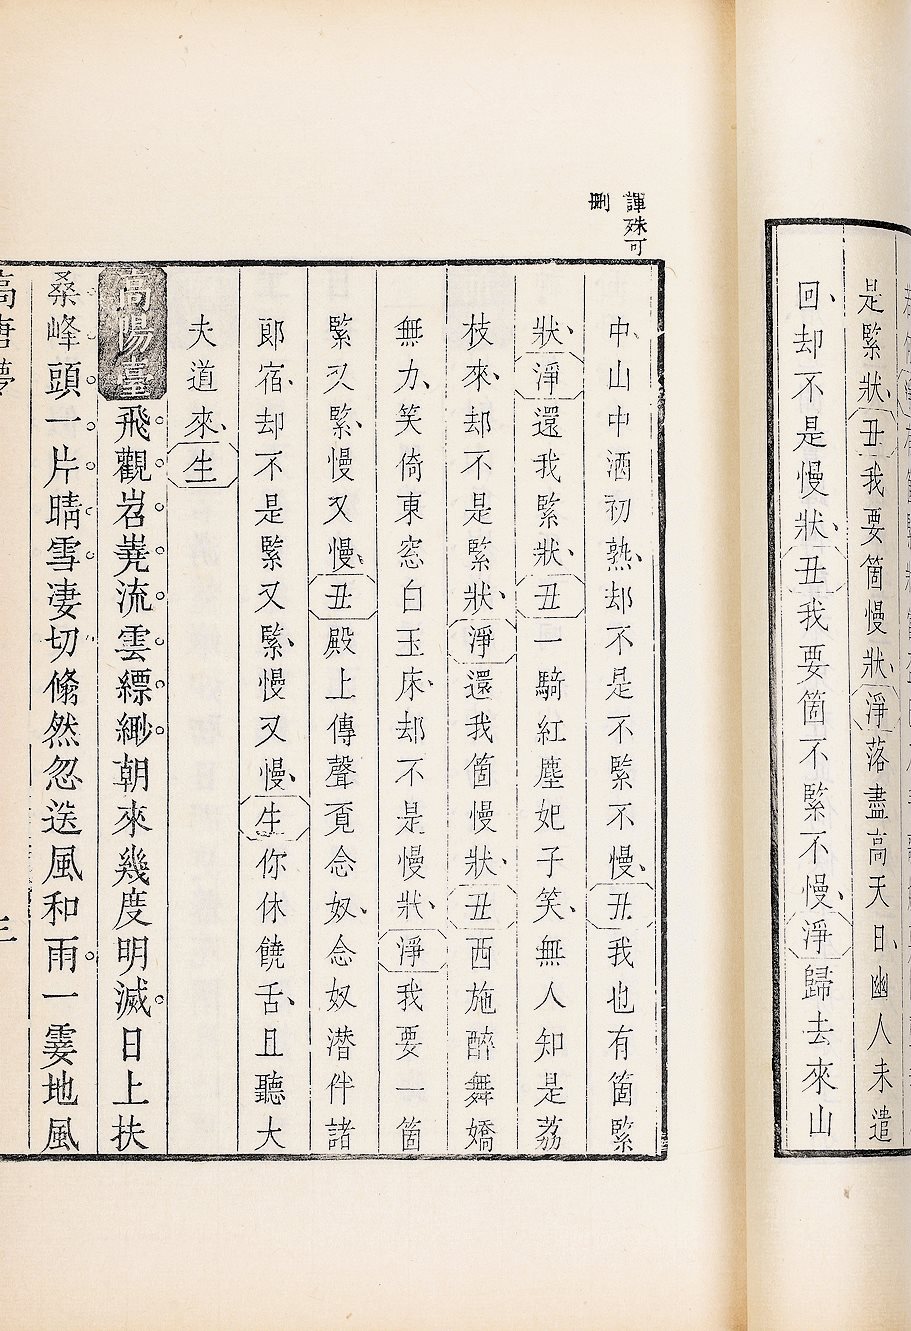 是緊狀、丑我要箇慢狀、淨落盡高天日、幽人未遣
回、却不是慢狀、丑我要箇不緊不慢、淨歸去來山
諢殊可
刪
中、山中酒初熟、却不是不緊不慢、丑我也有箇緊
狀、淨還我緊狀、丑一騎紅塵妃子笑、無人知是荔
枝來、却不是緊狀、淨還我箇慢狀、丑西施醉舞嬌
無力、笑倚東窓白玉床、却不是慢狀、淨我要一箇
緊又緊、慢又慢、丑殿上傳聲覔念奴、念奴潜伴諸
郎宿、却不是緊又緊、慢又慢、生你休饒舌、且聽大
夫道來、生
高陽臺飛觀岧嶤流雲縹緲朝來幾度明滅日上扶
桑峰頭一片晴雪凄切翛然忽送風和雨一霎地風
高唐夢